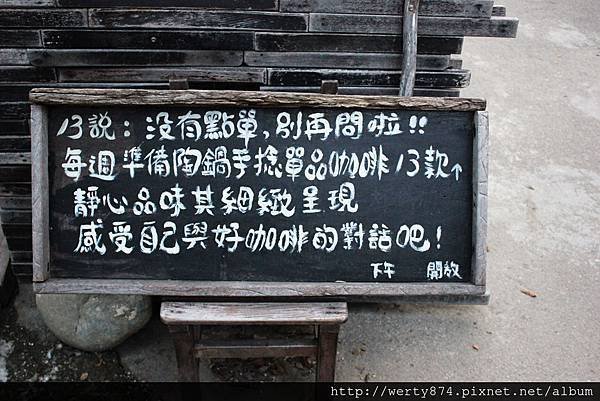 13說：沒有點單，別再問啦！！
每週準備陶鍋手捻單品咖啡13款↑
靜心品味其細緻呈現
感受自己與好咖啡的對話吧！
下午 開放
http://werty874.pixnet.net/album